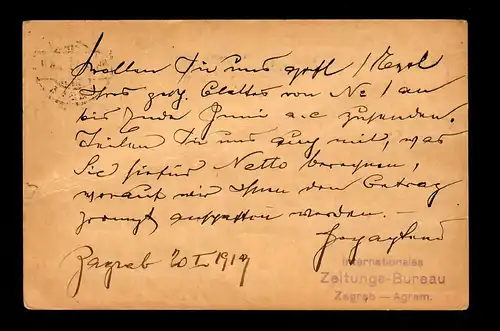 Wollen Sie uns gefl. 1 Expl.
Ihres gesch. Blattes von No 1 an
bis Ende Juni a.c. zusenden.
Teilen Sie uns auch mit, was
Sie hiefür Netto berechnen,
worauf wir Ihnen den Betrag
prompt
werden. —
Zagreb 20 I. 1914
Internationales
Zeitungs-Bureau
Zagreb — Agram.